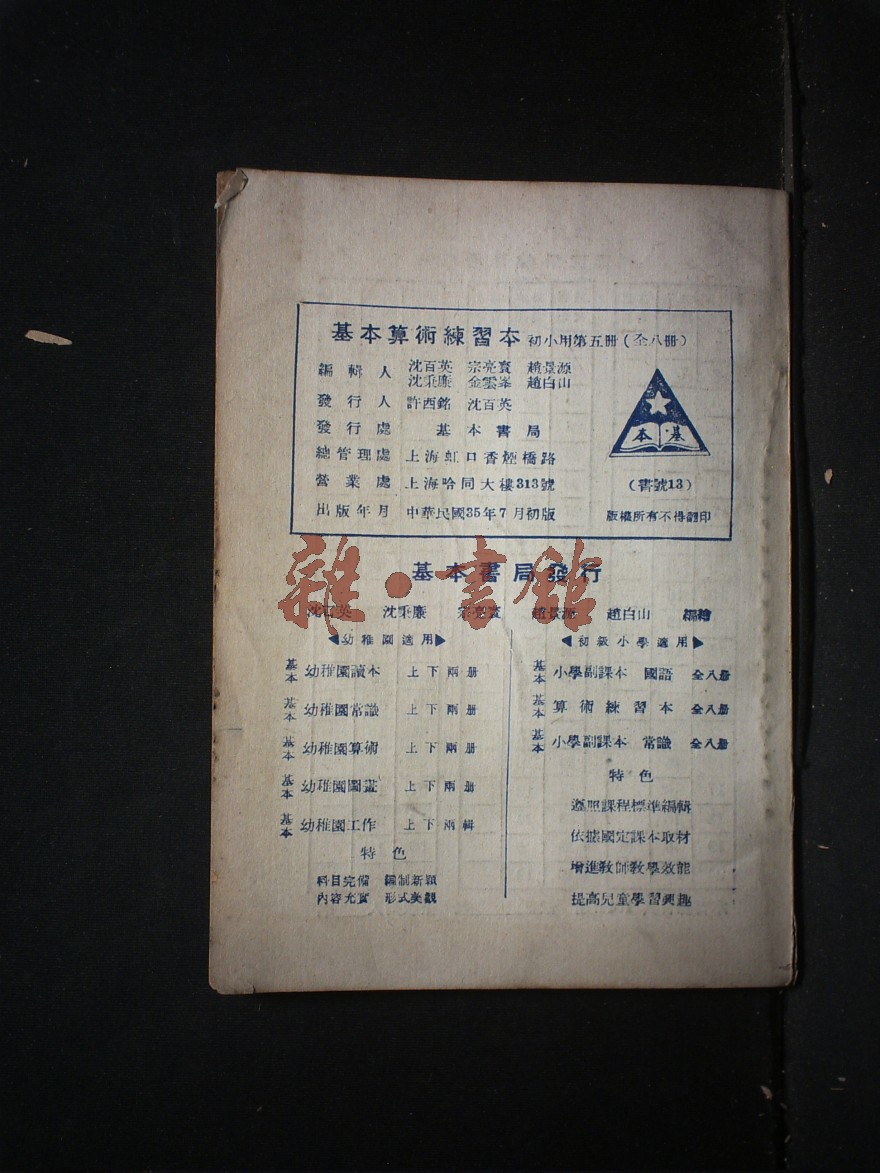 基本算術練習本 初小用第五冊(全八冊)
編輯人 沈百英 宗亮寰 趙景源
沈秉廉 金雲峯 趙白山
發行人 許西銘 沈百英
發行處 基本書局
總管理處 上海虹口香煙橋路
營業處 上海哈同大樓313號
出版年月 中華民國35年7月初版
本·基
(書號13)
版權所有不得翻印
雜·書館
基本書局發行
沈百英 沈秉廉 宗亮寰 趙景源 趙白山 編繪
◀幼稚園適用▶
基本 幼稚園讀本 上下兩册
基本 幼稚園常識 上下兩册
基本 幼稚園算術 上下兩册
基本 幼稚園圖畫 上下兩册
基本 幼稚園工作 上下兩輯
特色
科目完備 編制新穎
內容充實 形式美觀
◀初級小學適用▶
基本 小學副課本 國語 全八册
基本 算術練習本 全八册
基本 小學副課本 常識 全八册
特色
遵照課程標準編輯
依據國定課本取材
增進敎師敎學效能
提高兒童學習興趣